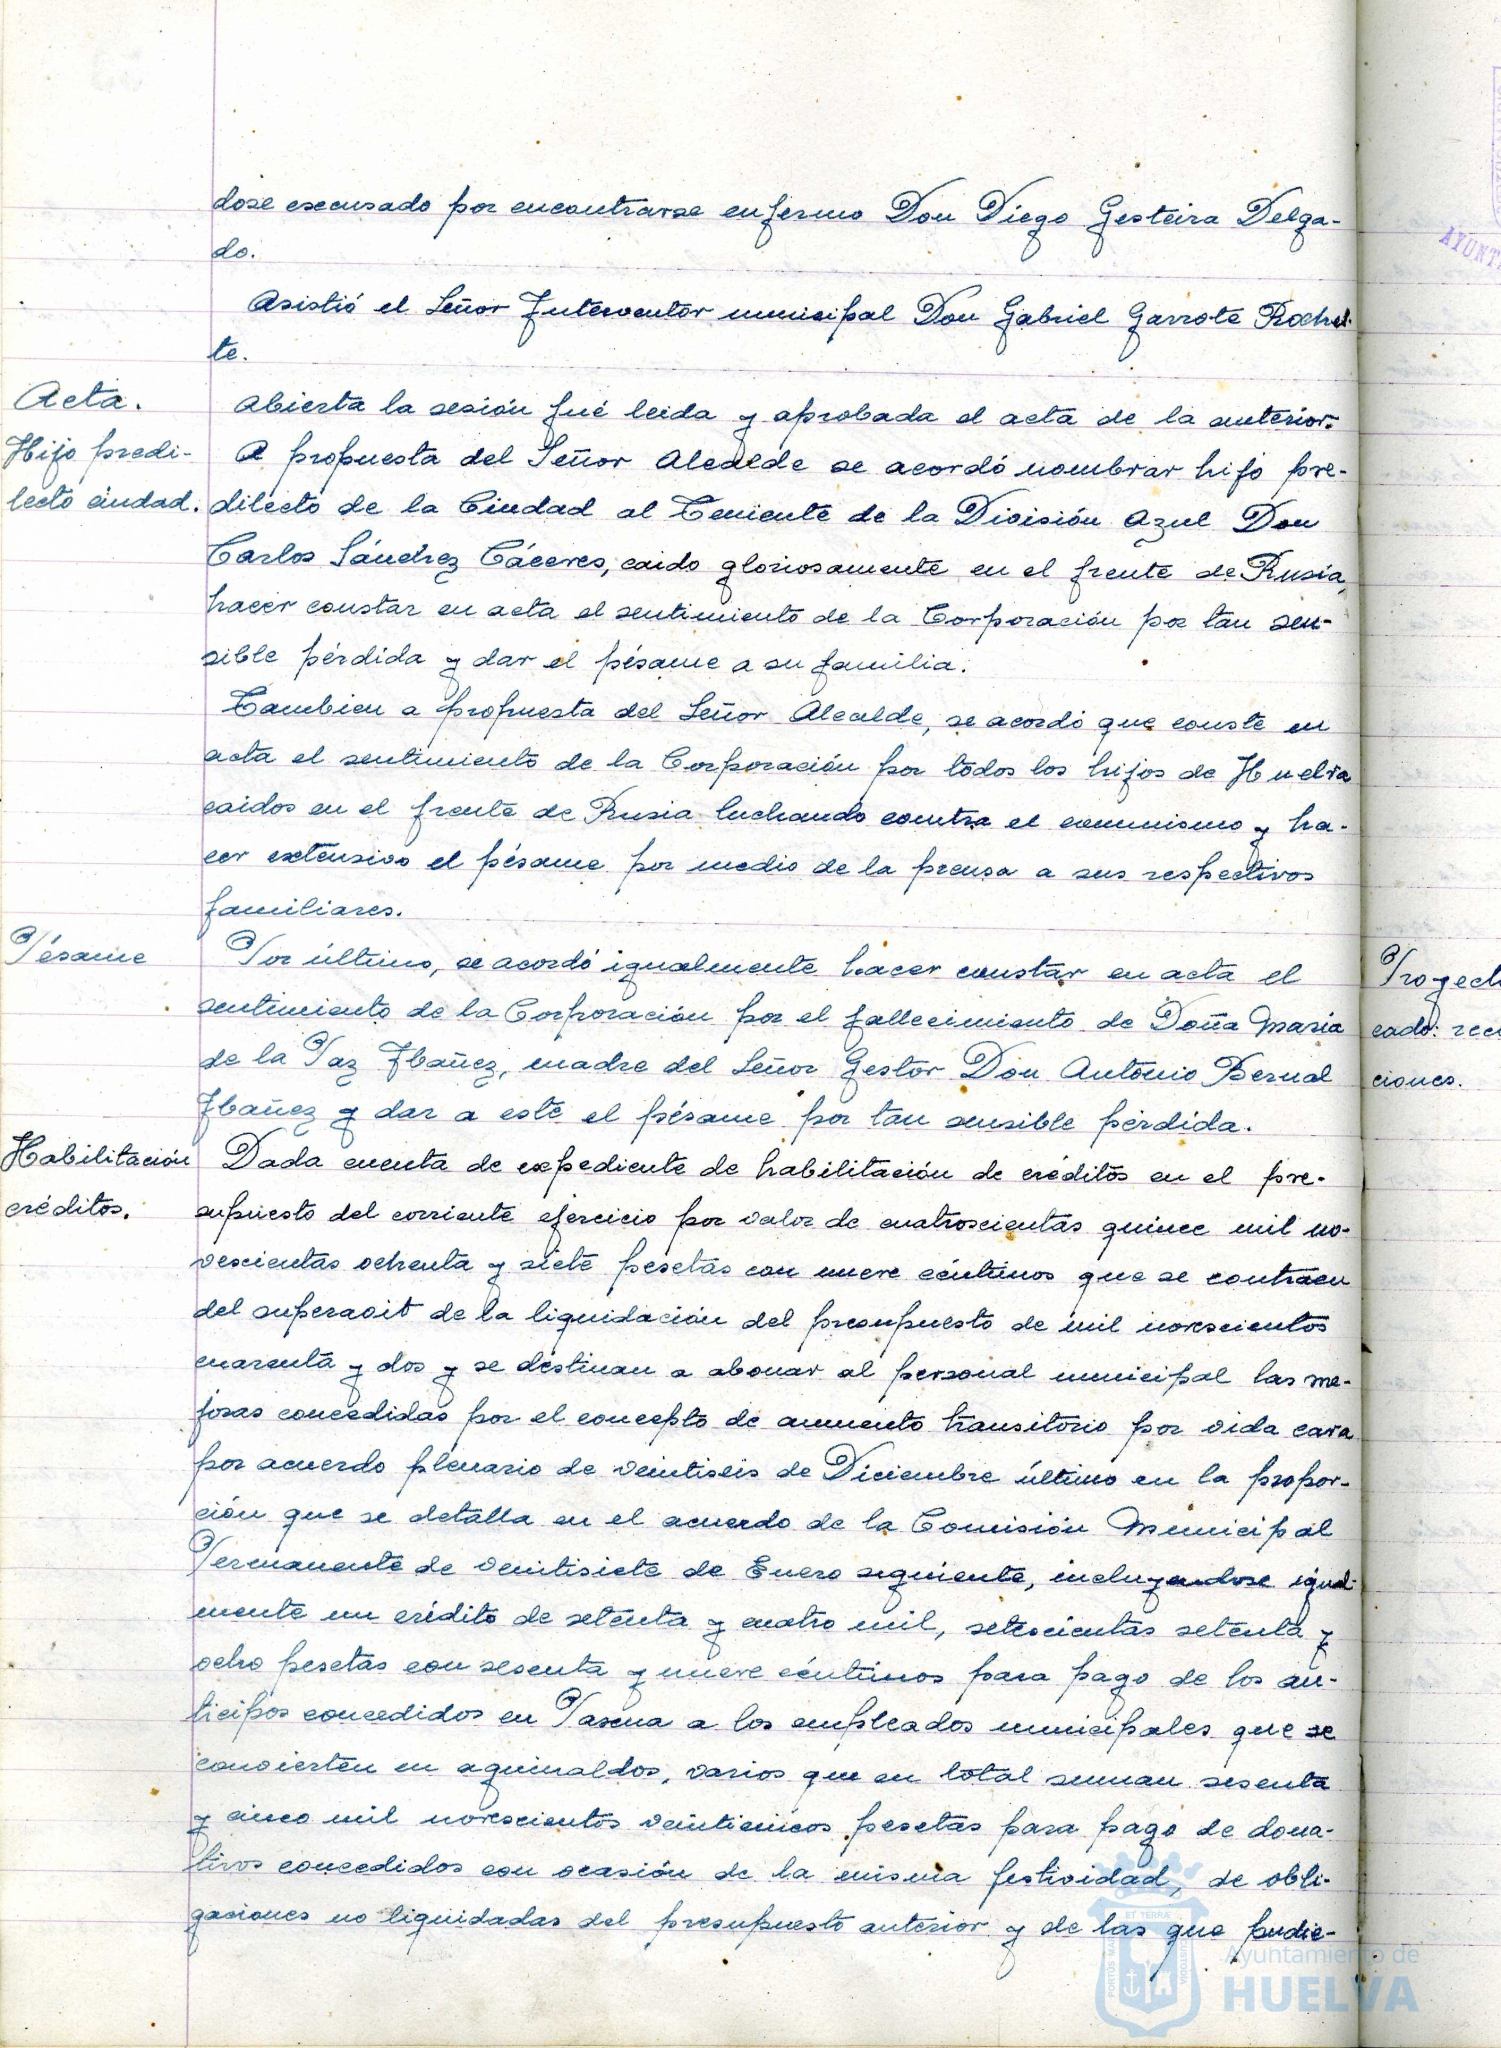 dose excusado por encontrarse enfermo Don Diego Gesteira Delga-
do.
Asistió el Señor Interventor municipal Don Gabriel Garrote Rochel-
te.
Acta.
Abierta la sesión fué leida y aprobada el acta de la anterior.
Hijo predi-
lecto ciudad.
A propuesta del Señor Alcalde se acordó nombrar hijo pre-
dilecto de la Ciudad al Teniente de la División Azul Don
Carlos Sánchez Cáceres, caido gloriosamente en el frente de Rusia,
hacer constar en acta el sentimiento de la Corporación por tan sen-
sible pérdida y dar el pésame a su familia.
Tambien a propuesta del Señor Alcalde, se acordó que conste en
acta el sentimiento de la Corporación por todos los hijos de Huelva
caidos en el frente de Rusia luchando contra el comunismo y ha-
cer extensivo el pésame por medio de la prensa a sus respectivos
familiares.
Pésame
Por último, se acordó igualmente hacer constar en acta el
sentimiento de la Corporación por el fallecimiento de Doña Maria
de la Paz Ibañez, madre del Señor Gestor Don Antonio Bernal
Ibañez y dar a este el pésame por tan sensible pérdida.
Habilitación
créditos.
Dada cuenta de expediente de habilitación de créditos en el pre-
supuesto del corriente ejercicio por valor de cuatroscientas quince mil no-
vescientas ochenta y siete pesetas con nueve céntimos que se contraen
del superavit de la liquidación del presupuesto de mil novescientos
cuarenta y dos y se destinan a abonar al personal municipal las me-
joras concedidas por el concepto de aumento transitorio por vida cara
por acuerdo plenario de veintiseis de Diciembre último en la propor-
ción que se detalla en el acuerdo de la Comisión Municipal
Permanente de veintisiete de Enero siguiente, incluyendose igual-
mente un crédito de setenta y cuatro mil, setescientas setenta y
ocho pesetas con sesenta y nueve céntimos para pago de los an-
ticipos concedidos en Pascua a los empleados municipales que se
convierten en aguinaldos, varios que en total suman sesenta
y cinco mil novescientos veinticincos pesetas para pago de dona-
tivos concedidos con ocasión de la misma festividad, de obli-
gaciones no liquidadas del presupuesto anterior y de las que pudie-
AYUNT
Proyect
cado: rec
ciones.
PORTUS MARIS ET TERRAE CUSTODIA
Ayuntamiento de
HUELVA